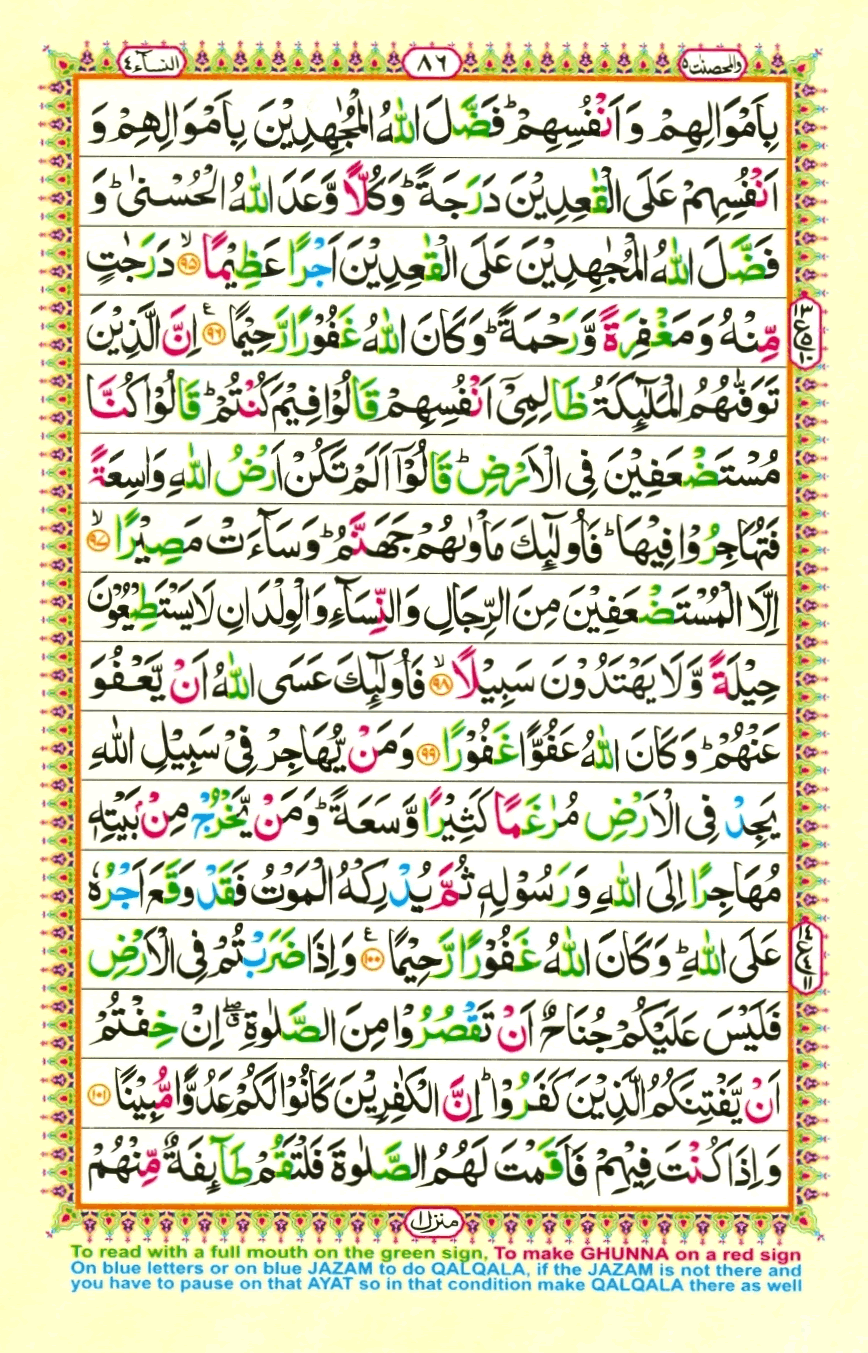 النسآء٤ ٨٦ والمحصنت٥
بِاَمْوَالِهِمْ وَ اَنْفُسِهِمْ ؕ فَضَّلَ اللّٰهُ الْمُجٰهِدِيْنَ بِاَمْوَالِهِمْ وَ
اَنْفُسِهِمْ عَلَى الْقٰعِدِيْنَ دَرَجَةً ؕ وَ كُلًّا وَّعَدَ اللّٰهُ الْحُسْنٰى ؕ وَ
فَضَّلَ اللّٰهُ الْمُجٰهِدِيْنَ عَلَى الْقٰعِدِيْنَ اَجْرًا عَظِيْمًا ۙ‏﴿۹۵﴾ دَرَجٰتٍ
مِّنْهُ وَ مَغْفِرَةً وَّ رَحْمَةً ؕ وَ كَانَ اللّٰهُ غَفُوْرًا رَّحِيْمًا ﴿۹۶﴾ ع اِنَّ الَّذِيْنَ
تَوَفّٰىهُمُ الْمَلٰٓئِكَةُ ظَالِمِىْۤ اَنْفُسِهِمْ قَالُوْا فِيْمَ كُنْتُمْ ؕ قَالُوْا كُنَّا
مُسْتَضْعَفِيْنَ فِى الْاَرْضِ ؕ قَالُوْۤا اَلَمْ تَكُنْ اَرْضُ اللّٰهِ وَاسِعَةً
فَتُهَاجِرُوْا فِيْهَا ؕ فَاُولٰٓئِكَ مَاْوٰىهُمْ جَهَنَّمُ ؕ وَ سَآءَتْ مَصِيْرًا ۙ﴿۹۷﴾
اِلَّا الْمُسْتَضْعَفِيْنَ مِنَ الرِّجَالِ وَ النِّسَآءِ وَ الْوِلْدَانِ لَا يَسْتَطِيْعُوْنَ
حِيْلَةً وَّ لَا يَهْتَدُوْنَ سَبِيْلًا ۙ﴿۹۸﴾ فَاُولٰٓئِكَ عَسَى اللّٰهُ اَنْ يَّعْفُوَ
عَنْهُمْ ؕ وَ كَانَ اللّٰهُ عَفُوًّا غَفُوْرًا ﴿۹۹﴾ وَ مَنْ يُّهَاجِرْ فِىْ سَبِيْلِ اللّٰهِ
يَجِدْ فِى الْاَرْضِ مُرٰغَمًا كَثِيْرًا وَّ سَعَةً ؕ وَ مَنْ يَّخْرُجْ مِنْۢ بَيْتِهٖ
مُهَاجِرًا اِلَى اللّٰهِ وَ رَسُوْلِهٖ ثُمَّ يُدْرِكْهُ الْمَوْتُ فَقَدْ وَقَعَ اَجْرُهٗ
عَلَى اللّٰهِ ؕ وَ كَانَ اللّٰهُ غَفُوْرًا رَّحِيْمًا ﴿۱۰۰﴾ ع وَ اِذَا ضَرَبْتُمْ فِى الْاَرْضِ
فَلَيْسَ عَلَيْكُمْ جُنَاحٌ اَنْ تَقْصُرُوْا مِنَ الصَّلٰوةِ ۖق اِنْ خِفْتُمْ
اَنْ يَّفْتِنَكُمُ الَّذِيْنَ كَفَرُوْا ؕ اِنَّ الْكٰفِرِيْنَ كَانُوْا لَكُمْ عَدُوًّا مُّبِيْنًا ﴿۱۰۱﴾
وَ اِذَا كُنْتَ فِيْهِمْ فَاَقَمْتَ لَهُمُ الصَّلٰوةَ فَلْتَقُمْ طَآئِفَةٌ مِّنْهُمْ
منزل١
To read with a full mouth on the green sign, To make GHUNNA on a red sign
On blue letters or on blue JAZAM to do QALQALA, if the JAZAM is not there and
you have to pause on that AYAT so in that condition make QALQALA there as well